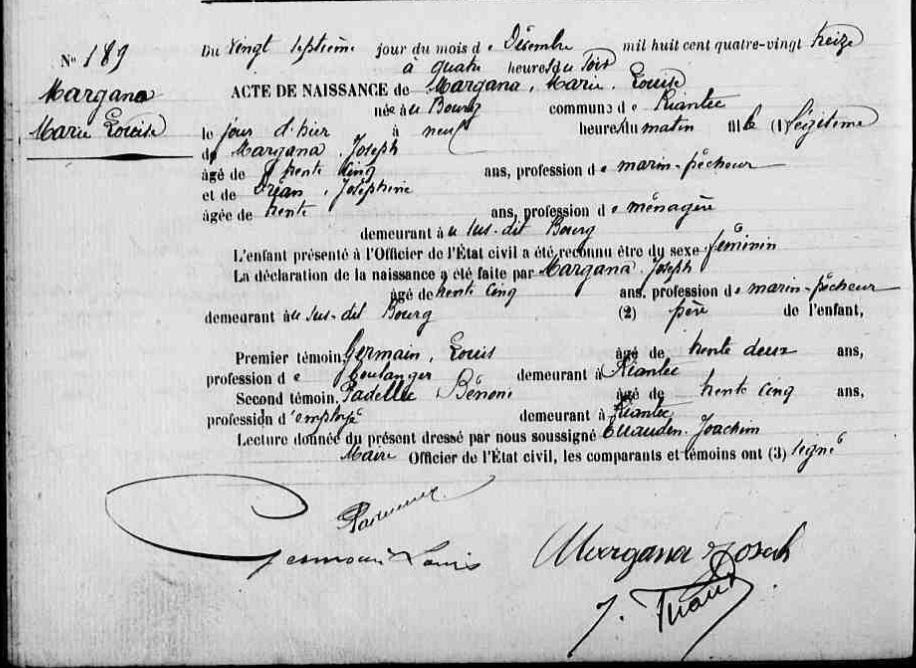 N° 189
Margana
Marie Louise
Du vingt septième jour du mois de Décembre mil huit cent quatre-vingt treize
à quatre heures du soir
ACTE DE NAISSANCE de Margana, Marie Louise
née au Bourg commune de Riantec
le jour d'hier à neuf heures du matin fille (1) légitime
de Margana Joseph
âgé de trente cinq ans, profession de marin-pêcheur
et de Joséphine
âgée de trente ans, profession de ménagère
demeurant au sus-dit Bourg
L'enfant présenté à l'Officier de l'État civil a été reconnu être du sexe féminin
La déclaration de la naissance a été faite par Margana Joseph
âgé de trente cinq ans, profession de marin-pêcheur
demeurant au sus-dit Bourg (2) père de l'enfant,
Premier témoin, Germain, Louis âgé de trente deux ans,
profession de boulanger demeurant à Riantec
Second témoin, Padellec Bénoni âgé de trente cinq ans,
profession d'employé demeurant à Riantec
Lecture donnée du présent dressé par nous soussigné Joachim
Maire Officier de l'État civil, les comparants et témoins ont (3) signé
Germain Louis Margana Joseph
J.